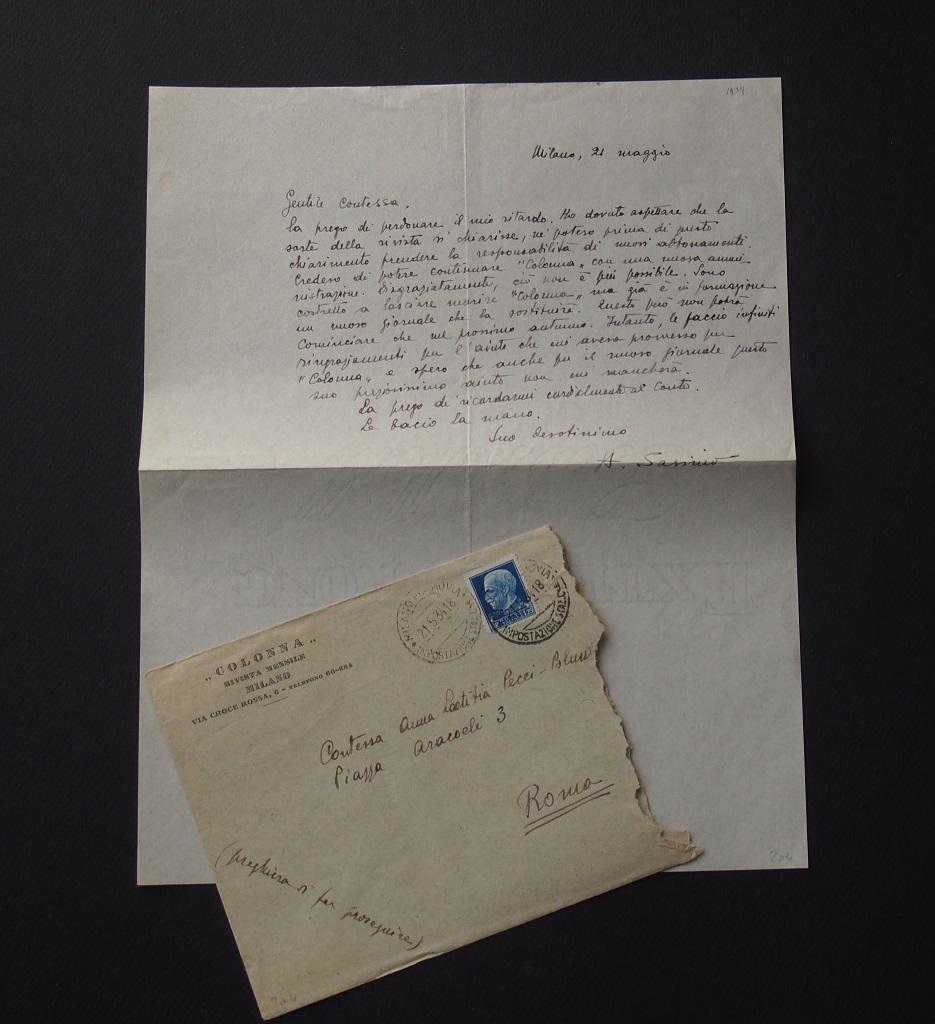 1934
Milano, 21 maggio
Gentile Contessa,
La prego di perdonare il mio ritardo. Ho dovuto aspettare che la
sorte della rivista si chiarisse, nè potevo prima di questo
chiarimento prendere la responsabilità di nuovi abbonamenti.
Credevo di potere continuare "Colonna" con una nuova ammi-
nistrazione. Disgraziatamente, ciò non è più possibile. Sono
costretto a lasciare morire "Colonna", ma già è in formazione
un nuovo giornale che la sostituirà. Questo però non potrà
cominciare che nel prossimo autunno. Intanto, le faccio infiniti
ringraziamenti per l'aiuto che mi aveva promesso per
"Colonna", e spero che anche per il nuovo giornale questo
suo preziosissimo aiuto non mi mancherà.
La prego di ricordarmi cordialmente al Conte.
Le bacio la mano.
Suo devotissimo
A. Savinio
"COLONNA"
RIVISTA MENSILE
MILANO
VIA CROCE ROSSA, 6 - TELEFONO 66-884
MILANO FERROVIA
21.5.34.18
IMPOSTAZIONE
Contessa Anna Laetitia Pecci-Blunt
Piazza Aracoeli 3
Roma
(preghiera di far proseguire)
204
204